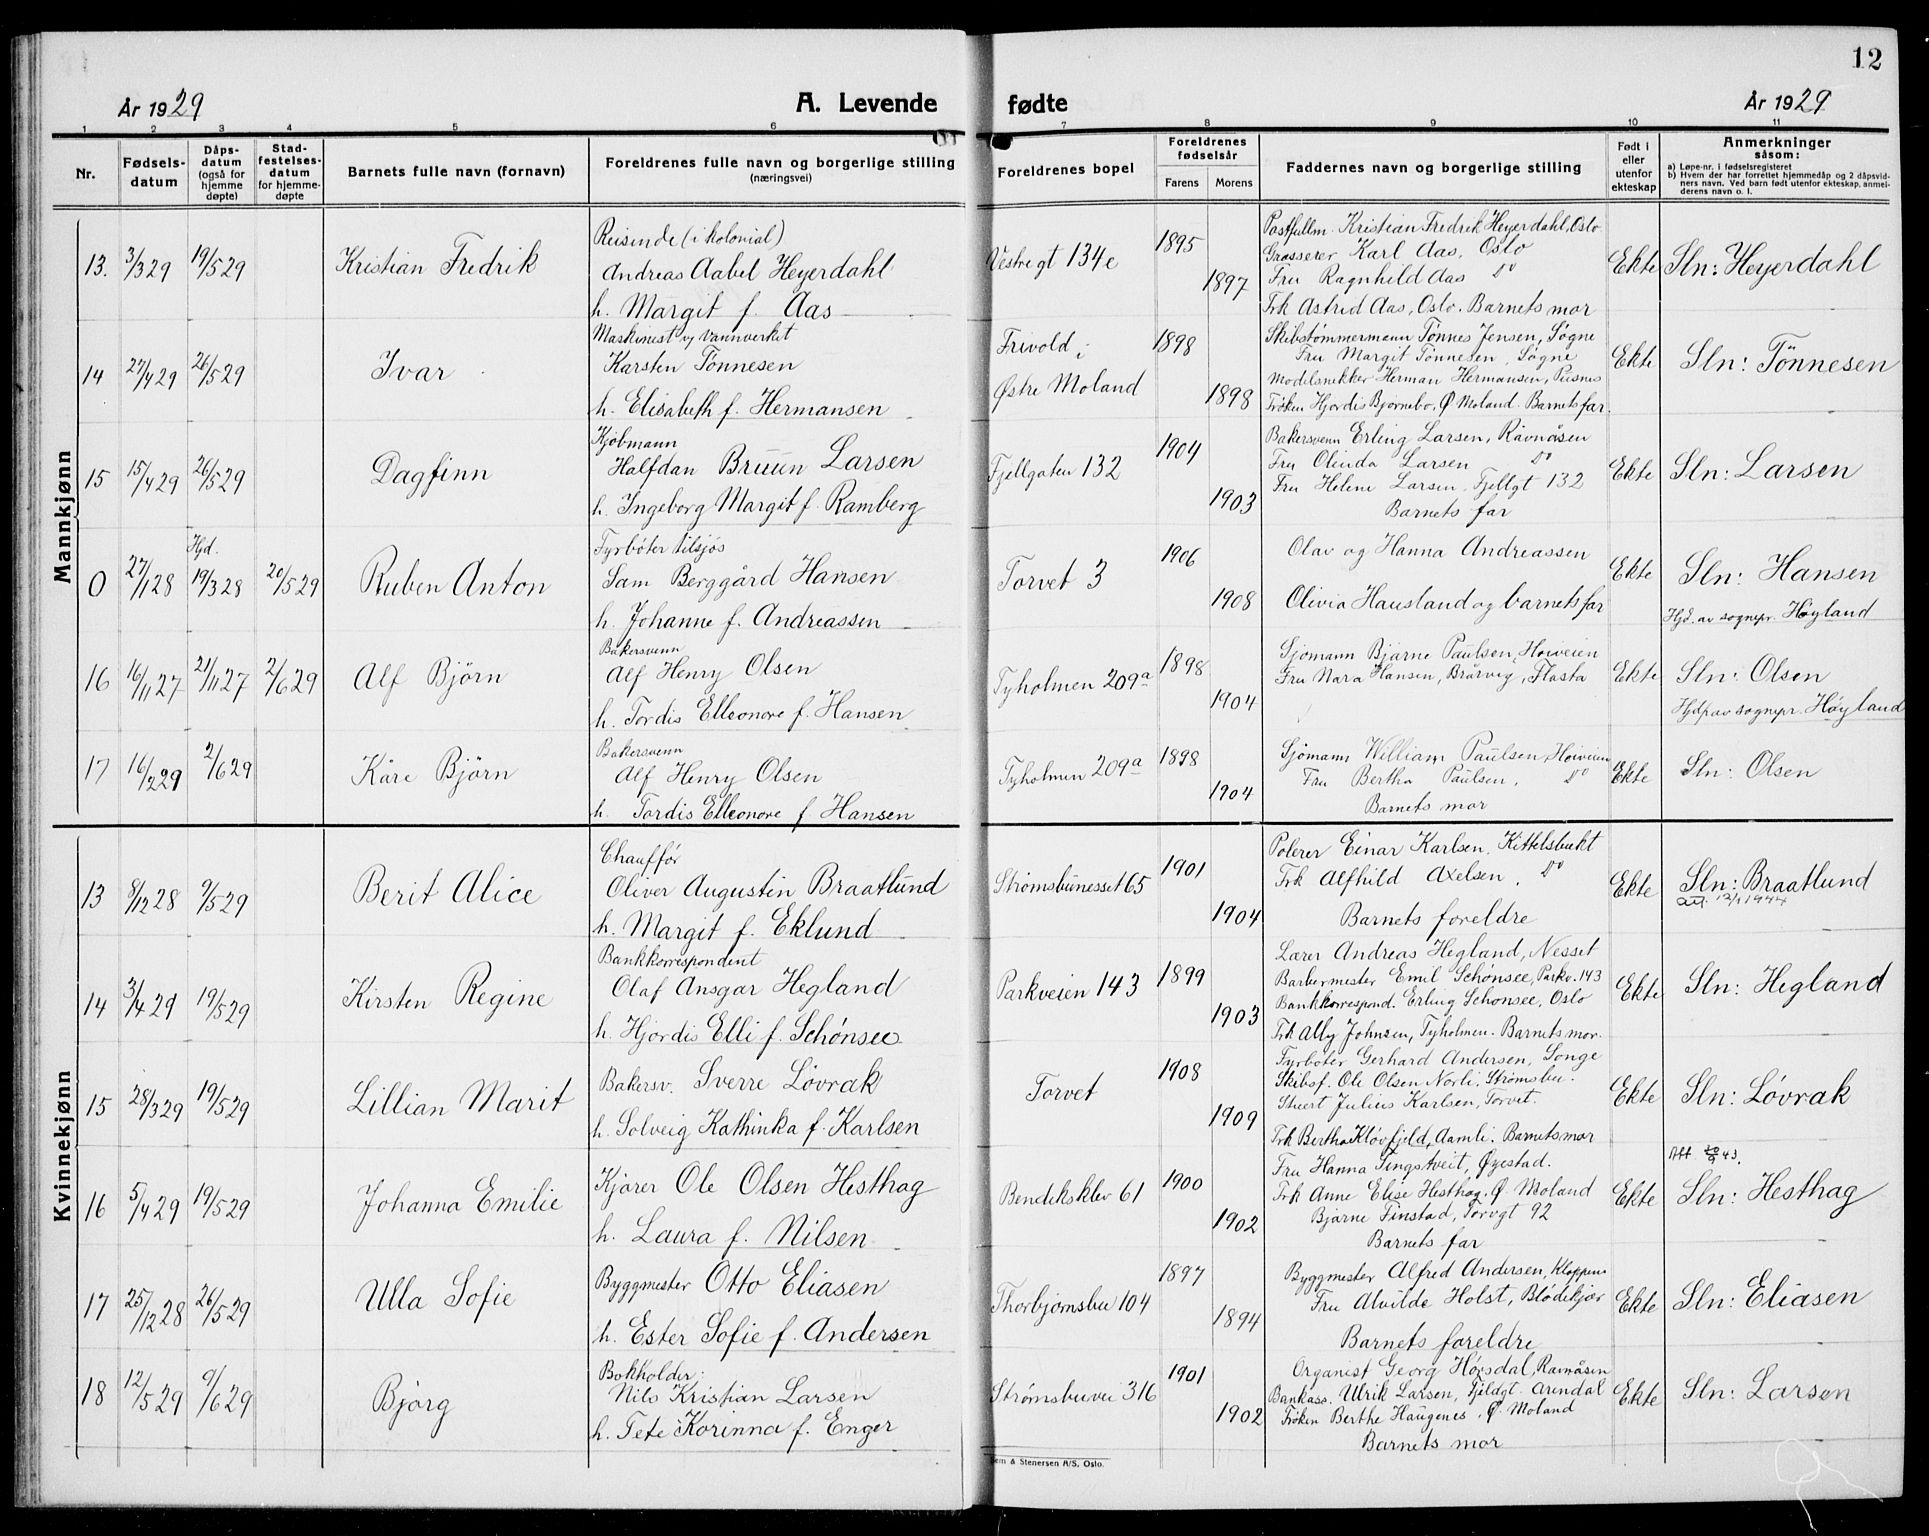 12
År 1929
A. Levende fødte
År 1929
1 2 3 4 5 6 7 8 9 10 11
Nr.
Fødsels-
datum
Dåps-
datum
(også for
hjemme
døpte)
Stad-
festelses-
datum
for hjemme-
døpte
Barnets fulle navn (fornavn)
Foreldrenes fulle navn og borgerlige stilling
(næringsvei)
Foreldrenes bopel
Foreldrenes
fødselsår
Farens Morens
Faddernes navn og borgerlige stilling
Født i
eller
utenfor
ekteskap
Anmerkninger
såsom:
a) Løpe-nr. i fødselsregisteret
b) Hvem der har forrettet hjemmedåp og 2 dåpsvid-
ners navn. Ved barn født utenfor ekteskap, anmel-
derens navn o. l.
Mannkjønn
13. 3/3 29 19/5 29 Kristian Fredrik
Reisende (i kolonial)
Andreas Aabel Heyerdahl
h. Margit f. Aas
Vestregt 134e 1895 1897
Postfullm. Kristian Fredrik Heyerdahl, Oslo
Grosserer Karl Aas, Oslo
Fru Ragnhild Aas Do
Frk Astrid Aas, Oslo. Barnets mor
Ekte Sln: Heyerdahl
14 27/4 29 26/5 29 Ivar
Maskinist v/ Vannverket
Karsten Tönnesen
h. Elisabeth f. Hermansen
Frivold i
Østre Moland
1898 1898
Skibstømmermann Tønnes Jensen, Søgne
Fru Margit Tönnesen, Søgne
Modelsnekker Herman Hermansen, Pusnes
Frøken Hjordis Bjørnebo, Ø Moland. Barnets far.
Ekte Sln: Tönnesen
15 15/4 29 26/5 29 Dagfinn
Kjøbmann
Halfdan Bruun Larsen
h. Ingeborg Margit f. Ramberg
Fjellgaten 132 1904 1903
Bakersvenn Erling Larsen, Ravnåsen
Fru Olinda Larsen Do
Fru Helene Larsen, Fjellgt 132
Barnets far
Ekte Sln: Larsen
0 27/1 28 Hjd. 19/3 28 20/5 29 Ruben Anton
Fyrbøter tilsjøs
Sam Berggård Hansen
h. Johanne f. Andreassen
Torvet 3 1906 1908
Olav og Hanna Andreassen
Olivia Hausland og barnets far
Ekte Sln: Hansen
Hjd. av sognepr. Höyland
16 16/11 27 21/11 27 2/6 29 Alf Björn
Bakersvenn
Alf Henry Olsen
h. Tordis Elleonore f. Hansen
Tyholmen 209a 1898 1904
Sjömann Bjarne Paulsen, Höiveien
Fru Nara Hansen, Brårvig, Flosta
Ekte Sln: Olsen
Hjdp av sognepr. Höyland
17 16/2 29 2/6 29 Kåre Björn
Bakersvenn
Alf Henry Olsen
h. Tordis Elleonore f. Hansen
Tyholmen 209a 1898 1904
Sjömann William Paulsen, Höiveien
Fru Bertha Paulsen, Do
Barnets mor
Ekte Sln: Olsen
Kvinnekjønn
13 8/12 28 9/5 29 Berit Alice
Chauffør
Oliver Augustin Braatlund
h. Margit f. Eklund
Strømsbunesset 65 1901 1904
Polerer Einar Karlsen, Kittelsbukt
Frk Alfhild Axelsen, Do
Barnets foreldre
Ekte Sln: Braatlund
12/1 1944
14 3/4 29 19/5 29 Kirsten Regine
Bankkorrespondent
Olaf Ansgar Hegland
h. Hjördis Elli f. Schönsee
Parkveien 143 1899 1903
Lærer Andreas Hegland, Nesset
Barbermester Emil Schönsee, Parkv. 143
Bankkorrespond. Erling Schönsee, Oslo
Frk Ally Johnsen, Tyholmen. Barnets mor.
Ekte Sln: Hegland
15 28/3 29 19/5 29 Lillian Marit
Bakersv. Sverre Lövrak
h. Solveig Kathinka f. Karlsen
Torvet 1908 1909
Fyrbøter Gerhard Andersen, Songe
Skibsf. Ole Olsen Norli, Strømsbu.
Stuert Julius Karlsen, Torvet.
Frk Bertha Kløvfjeld, Aamli. Barnets mor
Ekte Sln: Lövrak
16 5/4 29 19/5 29 Johanna Emilie
Kjører Ole Olsen Hesthag
h. Laura f. Nilsen
Bendiksklev 61 1900 1902
Fru Hanna Tingstveit, Øyestad.
Frk Anne Elise Hesthag, Ø Moland
Bjarne Finstad, Torvgt 92
Barnets far
Ekte 43.
Sln: Hesthag
17 25/12 28 26/5 29 Ulla Sofie
Byggmester Otto Eliasen
h. Ester Sofie f. Andersen
Thorbjørnsbu 104 1897 1894
Byggmester Alfred Andersen, Kloppene
Fru Alvilde Holst, Blødekjær
Barnets foreldre
Ekte Sln: Eliasen
18 12/5 29 9/6 29 Björg
Bokholder
Nils Kristian Larsen
h. Tete Korinna f. Enger
Strømsbuvei 316 1901 1902
Organist Georg Høgsdal, Ravnåsen
Bankass. Ulrik Larsen, Fjeldgt. Arendal
Frøken Berthe Haugenes, Ø. Moland
Barnets mor
Ekte Sln: Larsen
Sem & Stenersen A/S, Oslo.